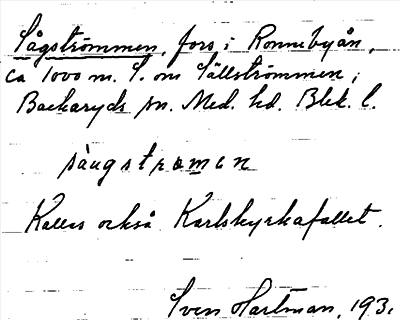 Sågströmmen, fors i Ronnebyån,
ca 1000 m. S. om Sällströmmen;
Backaryds sn. Med. hd. Blek. l.
såugstrœmen
Kallas också Karlskyrkafallet.
Sven Hartman, 193.